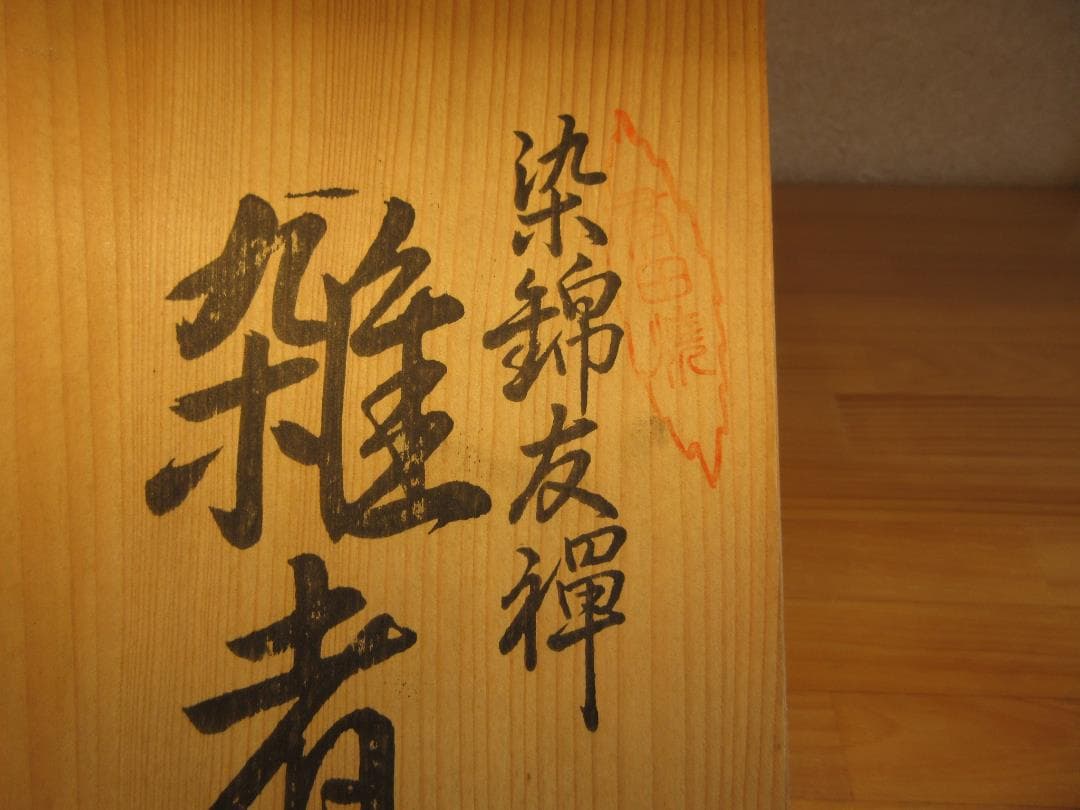 有田焼
染錦友禪
雑煮